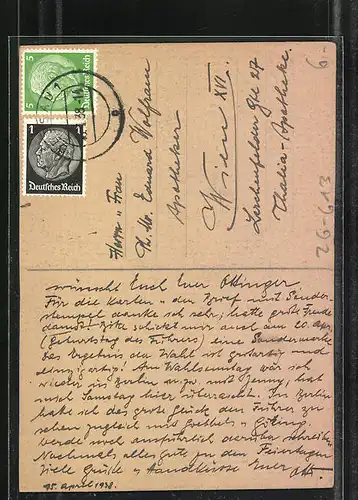 5
Deutsches Reich
1
Deutsches Reich
6.-
26613
Herrn u. Frau
Dr. Mr. Eduard Wolfram
Apotheker
Wien XVI.
Lerchenfelder Gtl 27
Thalia-Apotheke.
wünscht Euch Euer Ottinger
Für die Karten u. den Brief mit Sonder-
stempel danke ich sehr, hatte große Freude
damit. Bitte schickt mir auch am 20. Apr.
(Geburtstag des Führers) eine Sondermarke
Das Ergebnis der Wahl ist großartig und
einzigartig! Am Wahlsonntag war ich
wieder in Berlin
mich Samstag hier überrascht. In Berlin
habe ich das große Glück den Führer zu
sehen zugleich mit Goebbels u. Göring.
werde noch ausführlich darüber schreiben
Nochmals alles gute zu den Feiertagen
Viele Grüße u. Handküsse Euer Otti.
15. April 1938.